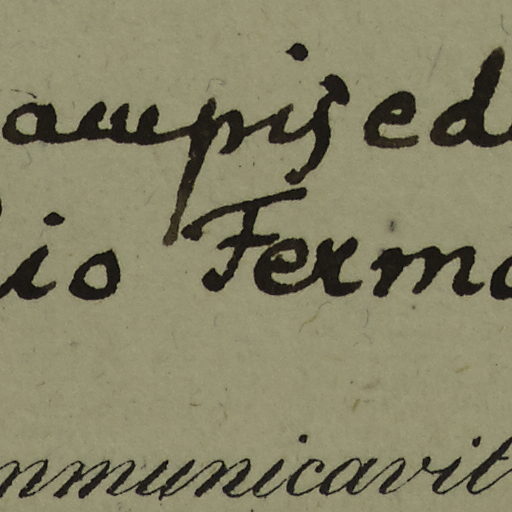 campis ed
io Ferma
mmunicavit